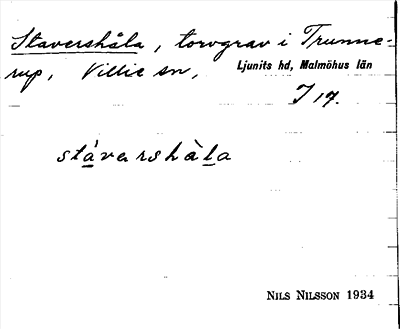 Stavershåla, torvgrav i Trunne-
rup, Villie sn, Ljunits hd, Malmöhus län
I 17.
stávarshàla
NILS NILSSON 1934